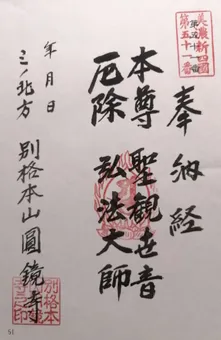 美濃新四國
第五十一番
奉納経
本尊 聖観世音
厄除 弘法大師
年月日
三ノ北方
別格本山圓鏡寺
51